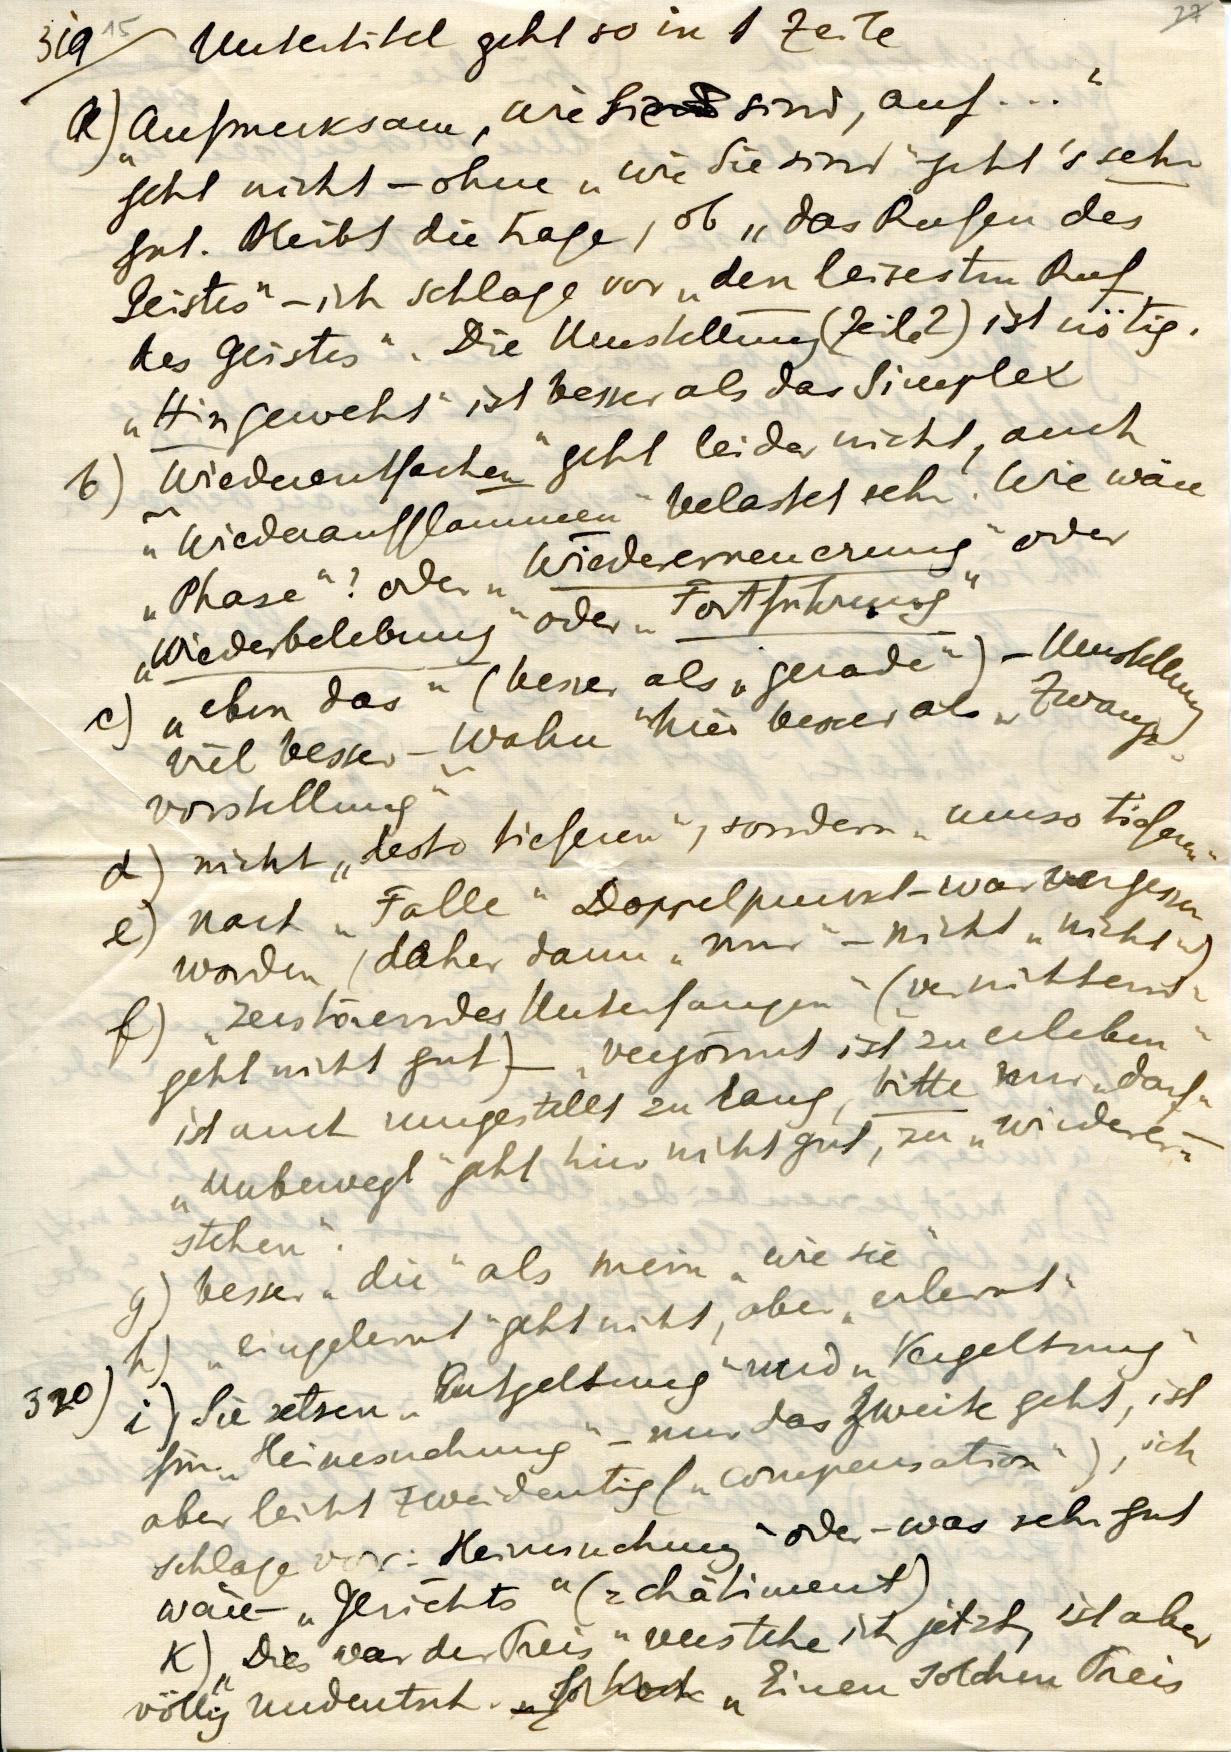 319 15 Untertitel geht so in 1 Zeile 27
a) „Aufmerksam, wie Sie sind, auf ..."
geht nicht – ohne „wie Sie sind" geht's sehr
gut. Bleibt die Frage, ob „das Rufen des
Geistes" – ich schlage vor „den leisesten Ruf
des Geistes". Die Umstellung (Zeile 2) ist nötig.
„Hingeweht" ist besser als das Simplex
b) „Wiederentfachen" geht leider nicht, auch
„Wiederaufflammen" belastet sehr. Wie wäre
„Phase"? oder „Wiedererneuerung" oder
„Wiederbelebung" oder „Fortführung"
c) „eben das" (besser als „gerade") – Umstellung
viel besser – „Wahn" hier besser als „Zwangs-
vorstellung"
d) nicht „desto tieferen", sondern „umso tieferen"
e) nach „Falle" Doppelpunkt – war vergessen
worden (daher dann „nur" – nicht „nicht")
f) „zerstörendes Unterfangen" („vernichtend"
geht nicht gut) – „vergönnt ist zu erleben"
ist auch umgestellt zu lang, bitte nur „darf"
„Unbewegt" geht hier nicht gut, zu „wiederer-
stehen".
g) besser „die" als mein „wie sie"
h) „eingelernt" geht nicht, aber „erlernt"
320) i) Sie setzen „Entgeltung" und „Vergeltung"
für „Heimsuchung" – nur das Zweite geht, ist
aber leicht zweideutig („compensation"), ich
schlage vor: Heimsuchung" oder – was sehr gut
wäre – „Gerichts" (= châtiment)
k) „Dies war der Preis" verstehe ich jetzt, ist aber
völlig undeutsch. „Einen solchen Preis